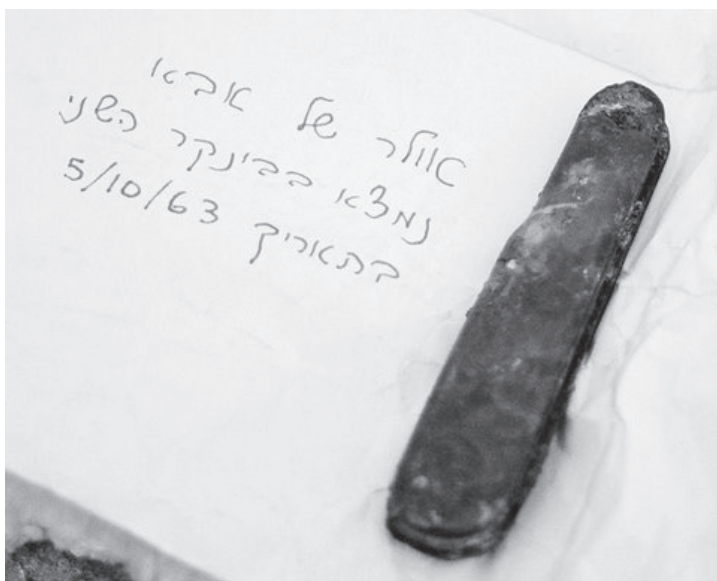 אולר של אבא
נמצא בבינקר השני
בתאריך 5/10/63